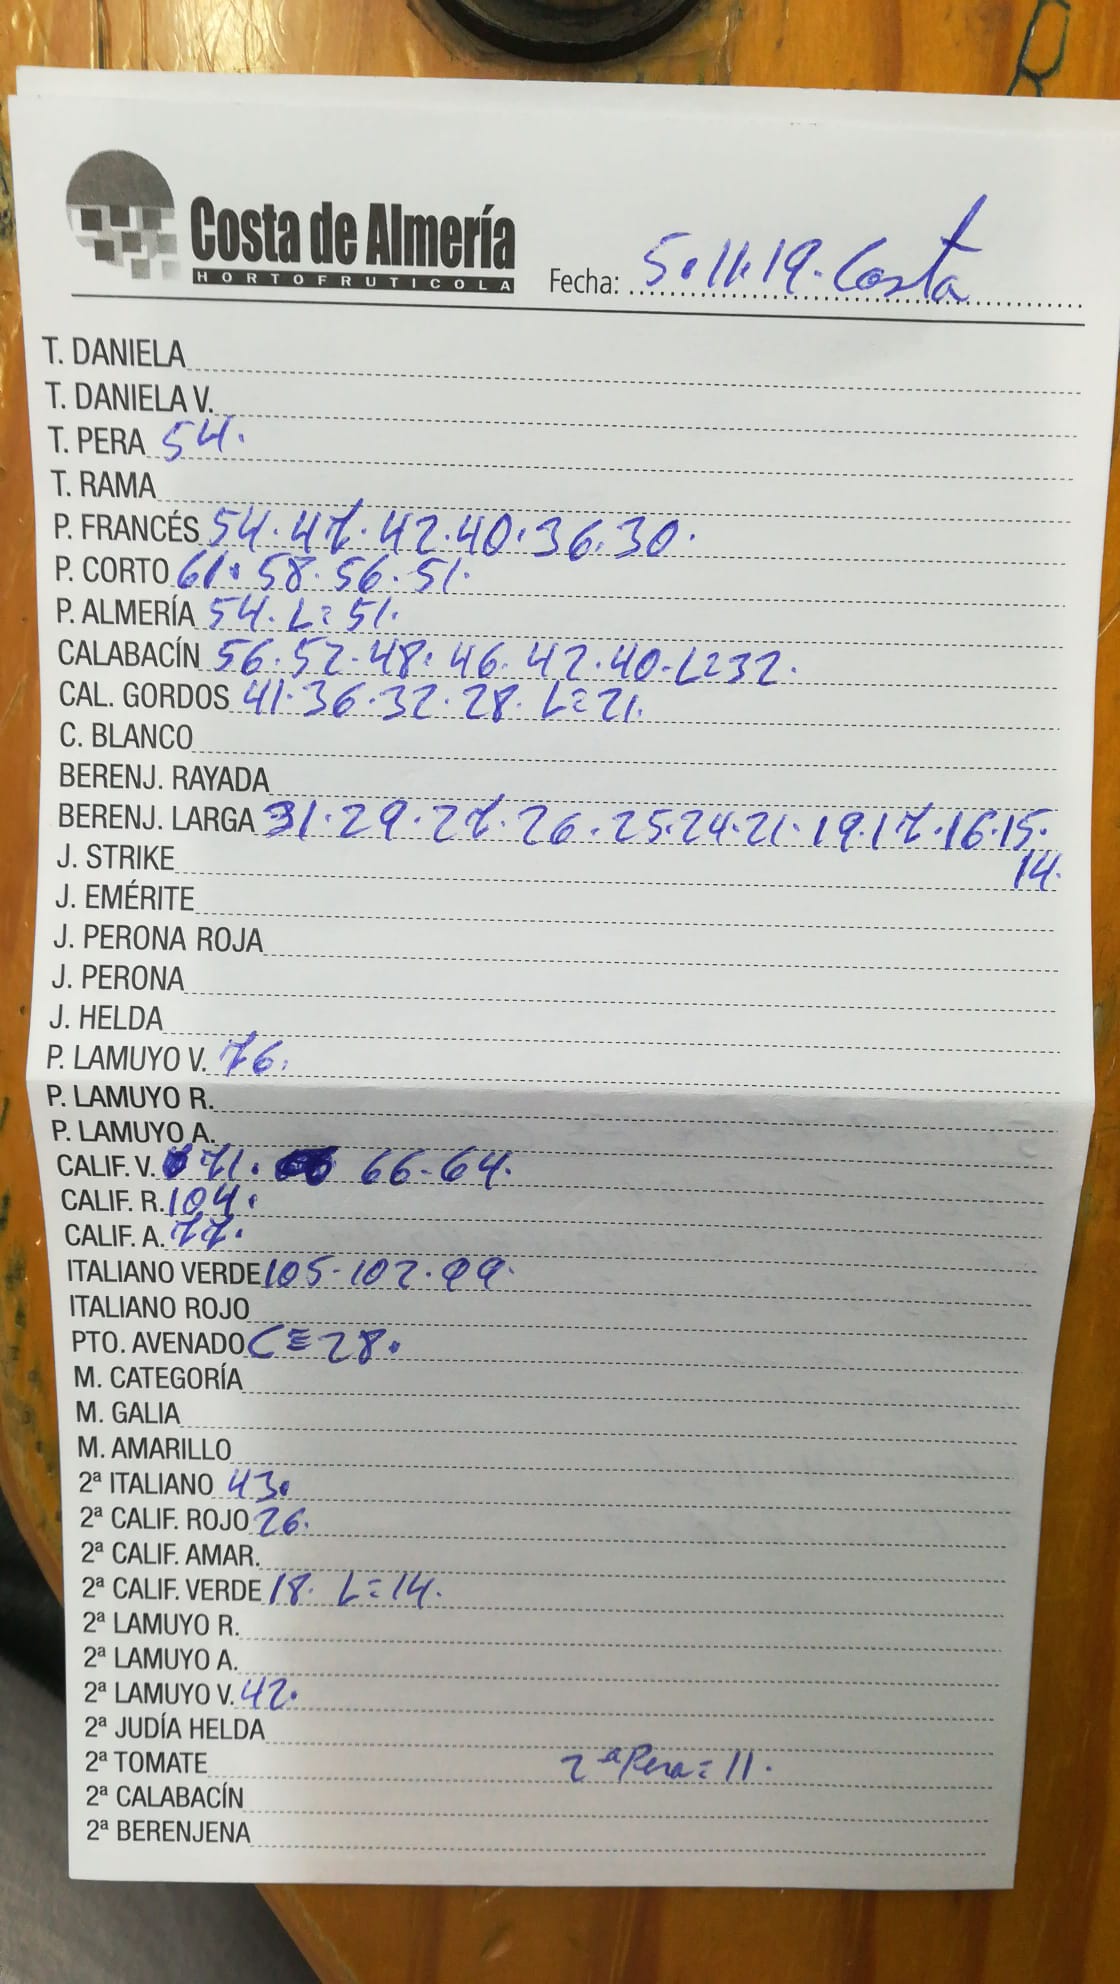 Costa de Almería
HORTOFRUTICOLA
Fecha: 5.11.19. Costa
T. DANIELA
T. DANIELA V.
T. PERA 54.
T. RAMA
P. FRANCÉS 54. 47. 42. 40. 36. 30.
P. CORTO 61. 58. 56. 51.
P. ALMERÍA 54. L= 51.
CALABACÍN 56. 52. 48. 46. 42. 40. L=32.
CAL. GORDOS 41. 36. 32. 28. L=21.
C. BLANCO
BERENJ. RAYADA
BERENJ. LARGA 31. 29. 27. 26. 25. 24. 21. 19. 17. 16. 15.
14.
J. STRIKE
J. EMÉRITE
J. PERONA ROJA
J. PERONA
J. HELDA
P. LAMUYO V. 76.
P. LAMUYO R.
P. LAMUYO A.
CALIF. V. 71. 66-64.
CALIF. R. 104.
CALIF. A. 77.
ITALIANO VERDE 105-102.99.
ITALIANO ROJO
PTO. AVENADO C=28.
M. CATEGORÍA
M. GALIA
M. AMARILLO
2ª ITALIANO 43.
2ª CALIF. ROJO 26.
2ª CALIF. AMAR.
2ª CALIF. VERDE 18. L=14.
2ª LAMUYO R.
2ª LAMUYO A.
2ª LAMUYO V. 42.
2ª JUDÍA HELDA
2ª TOMATE 2ª Pera=11.
2ª CALABACÍN
2ª BERENJENA